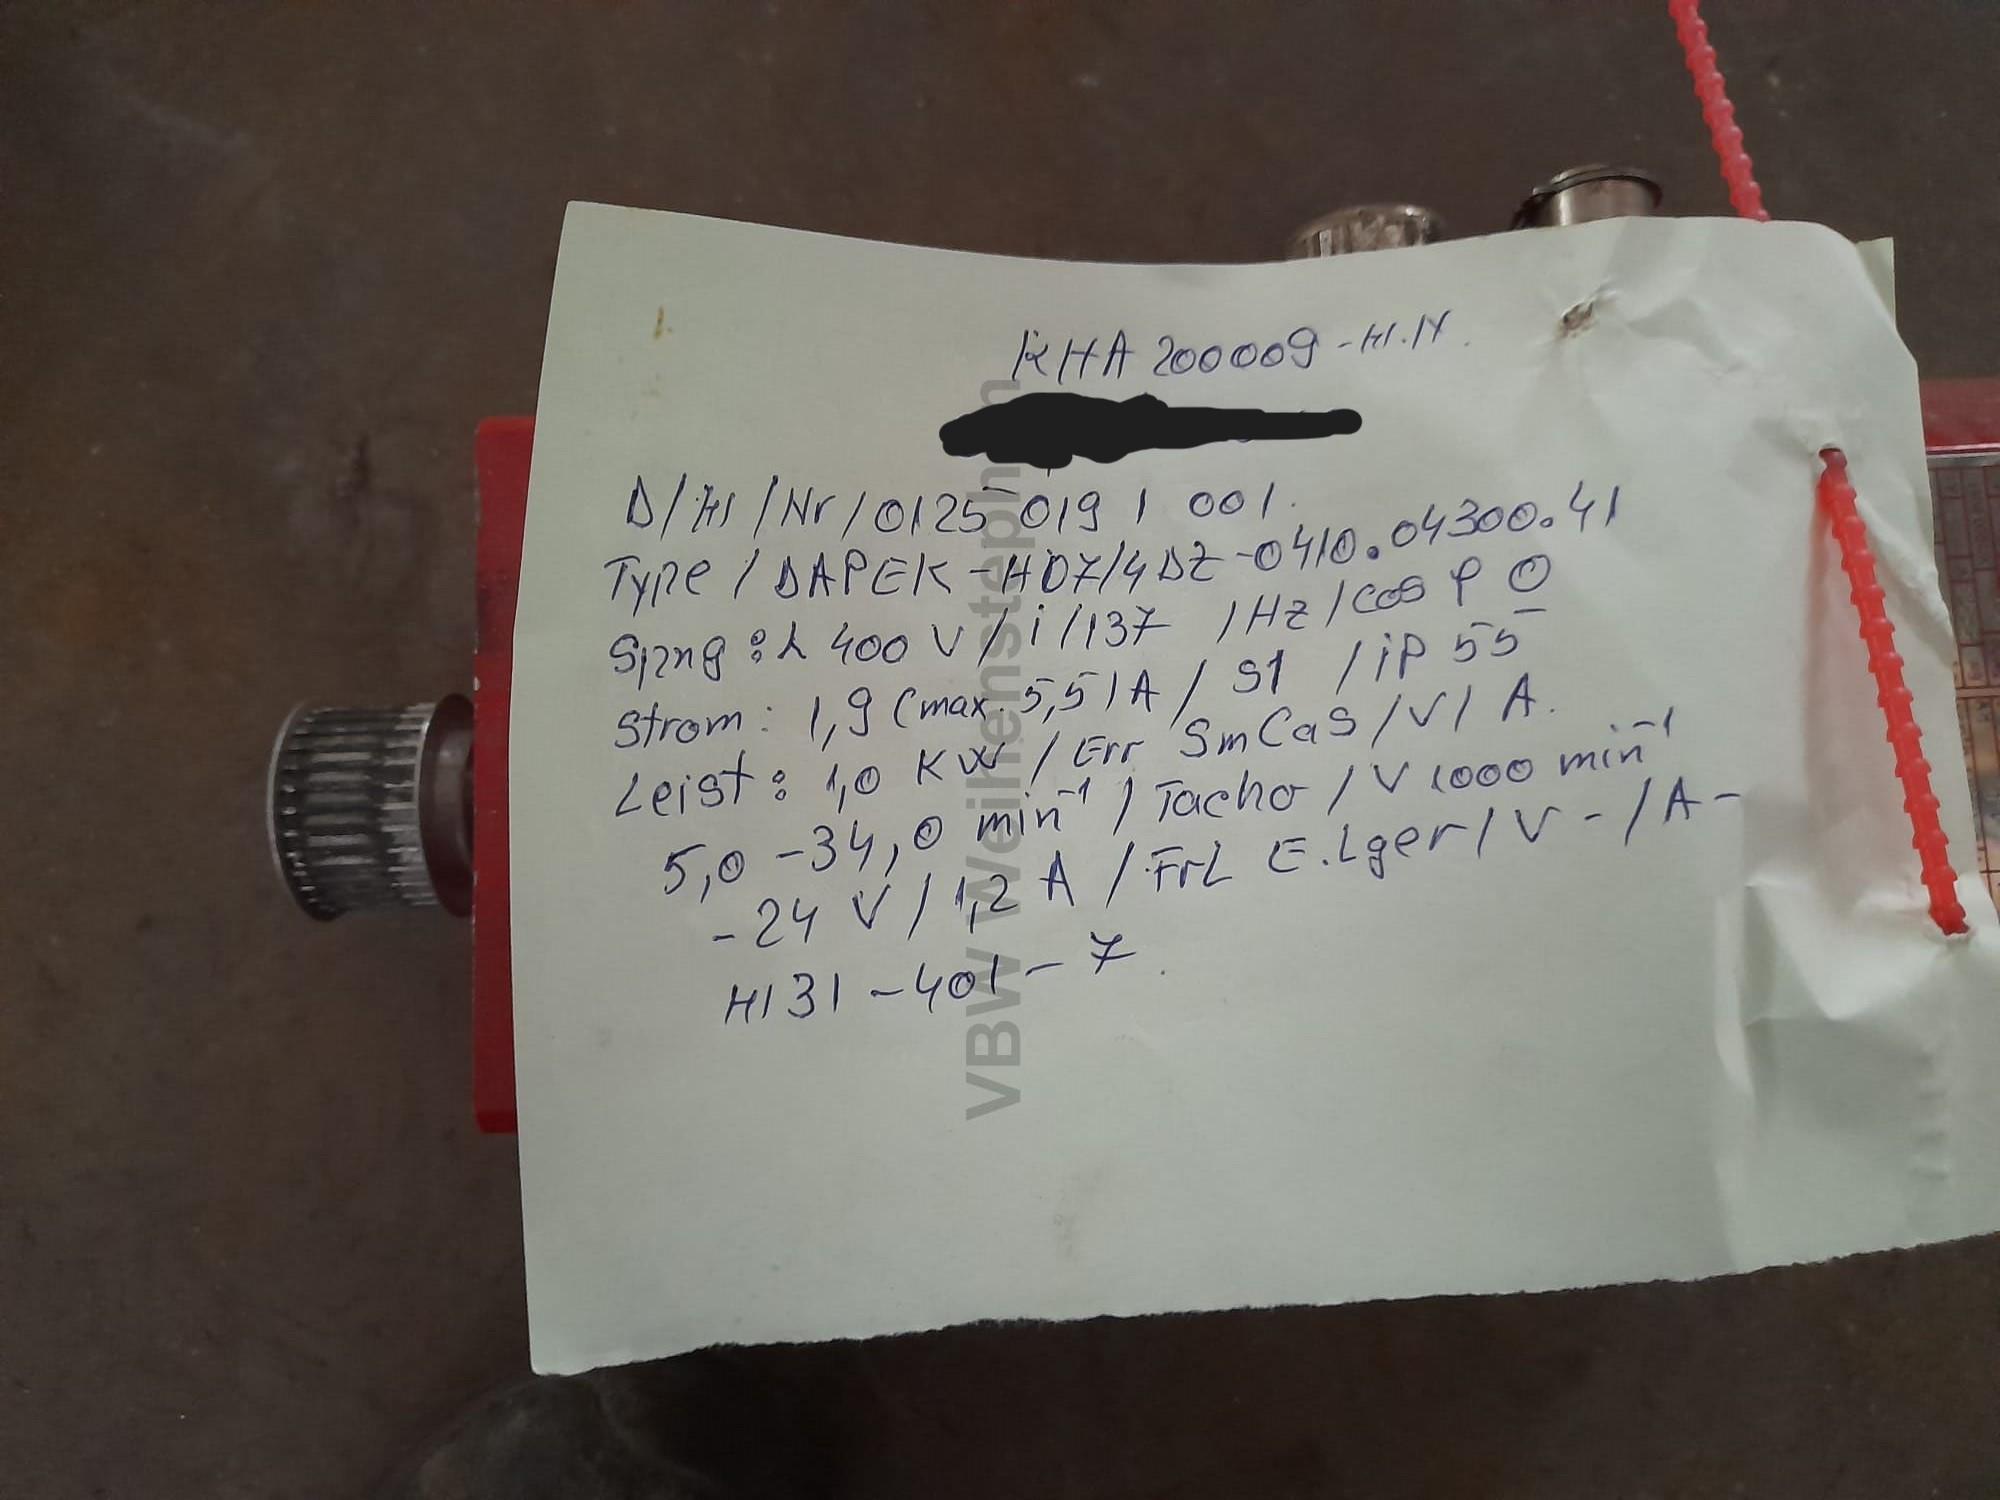 KHA 200009 - H1.14.
D/H1/Nr/0125 019 1 001.
Type / DAPEK - HD7/4 DZ - 0410.04300.41
Spng: λ 400 V / i /137 /Hz/cos φ 0
Strom: 1,9 (max. 5,5) A / S1 / iP 55
Leist: 1,0 KW / Err SmCaS / V / A.
5,0 - 34,0 min⁻¹ / Tacho / V 1000 min⁻¹
- 24 V / 1,2 A / FrL E.Lger / V - / A -
H131 - 401 - 7.
VBW Weihenstephan